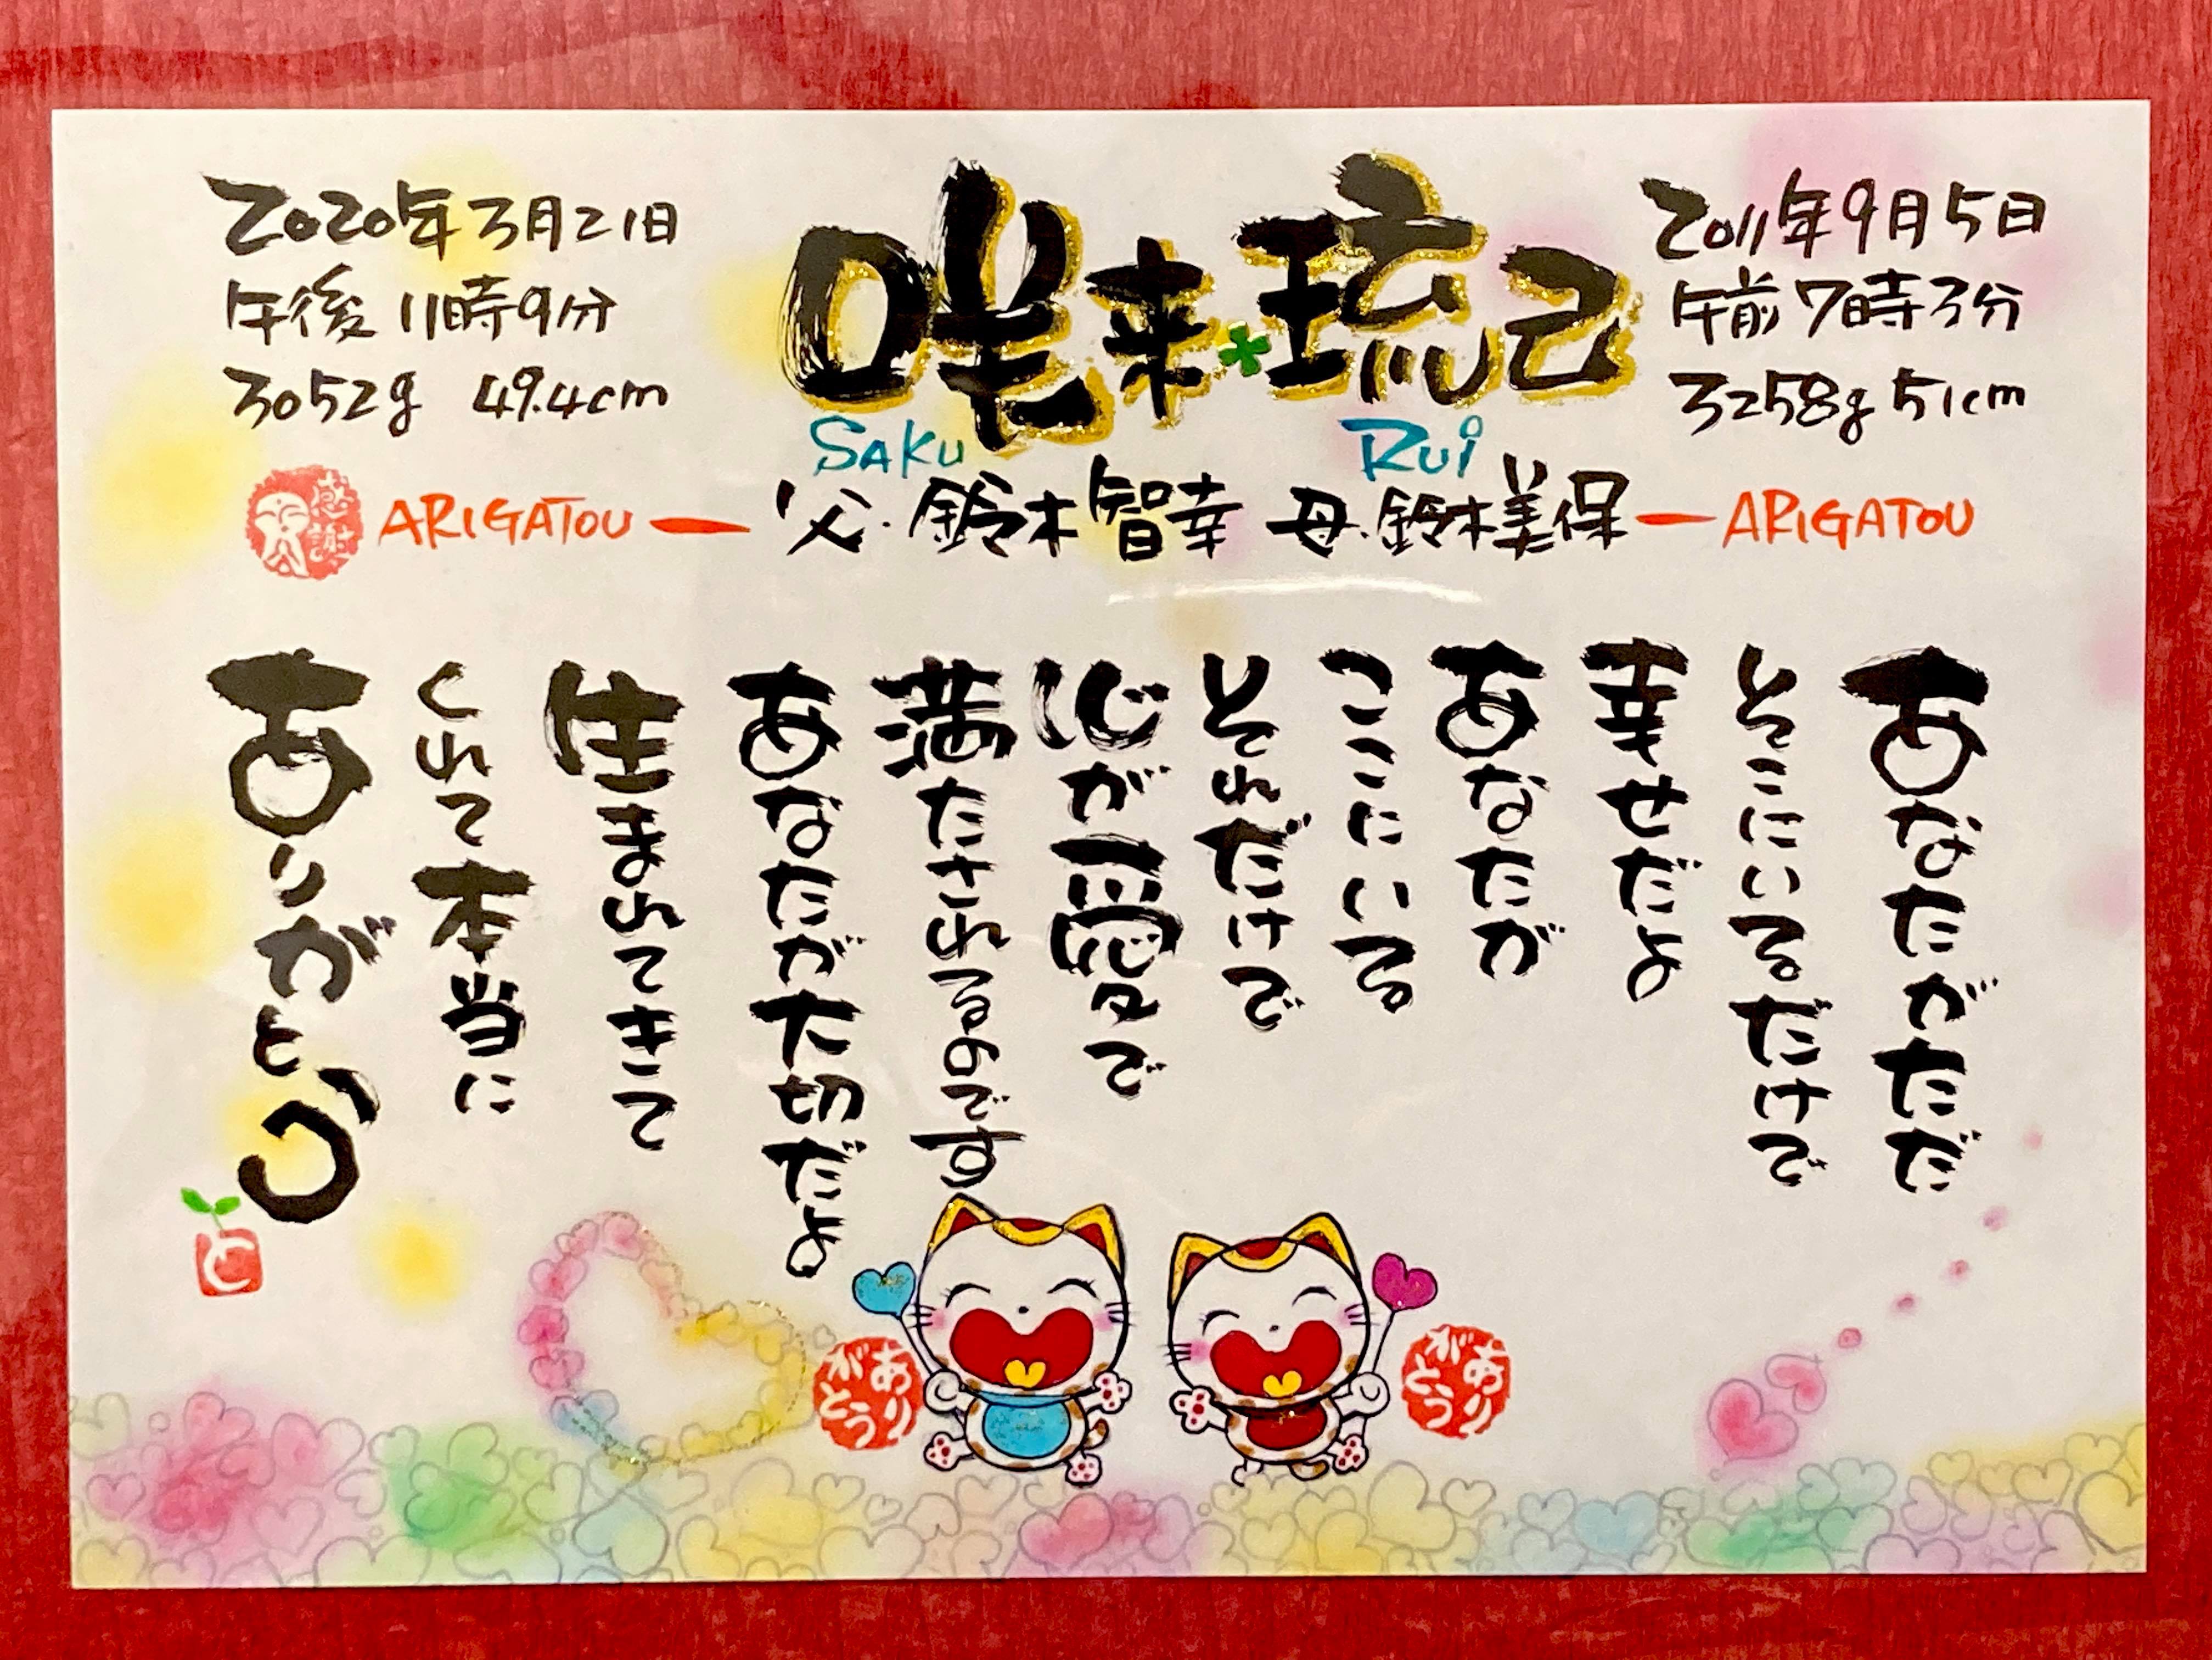 2020年3月21日
午後11時9分
3052g 49.4cm
咲来・琉己
SAKU Rui
2011年9月5日
午前7時3分
3258g 51cm
感謝
ARIGATOU
父・鈴木智幸 母・鈴木美保
ARIGATOU
あなたがただ
そこにいるだけで
幸せだよ
あなたが
ここにいる
それだけで
心が愛で
満たされるのです
あなたが大切だよ
生まれてきて
くれて本当に
ありがとう
と
ありがとう
ありがとう